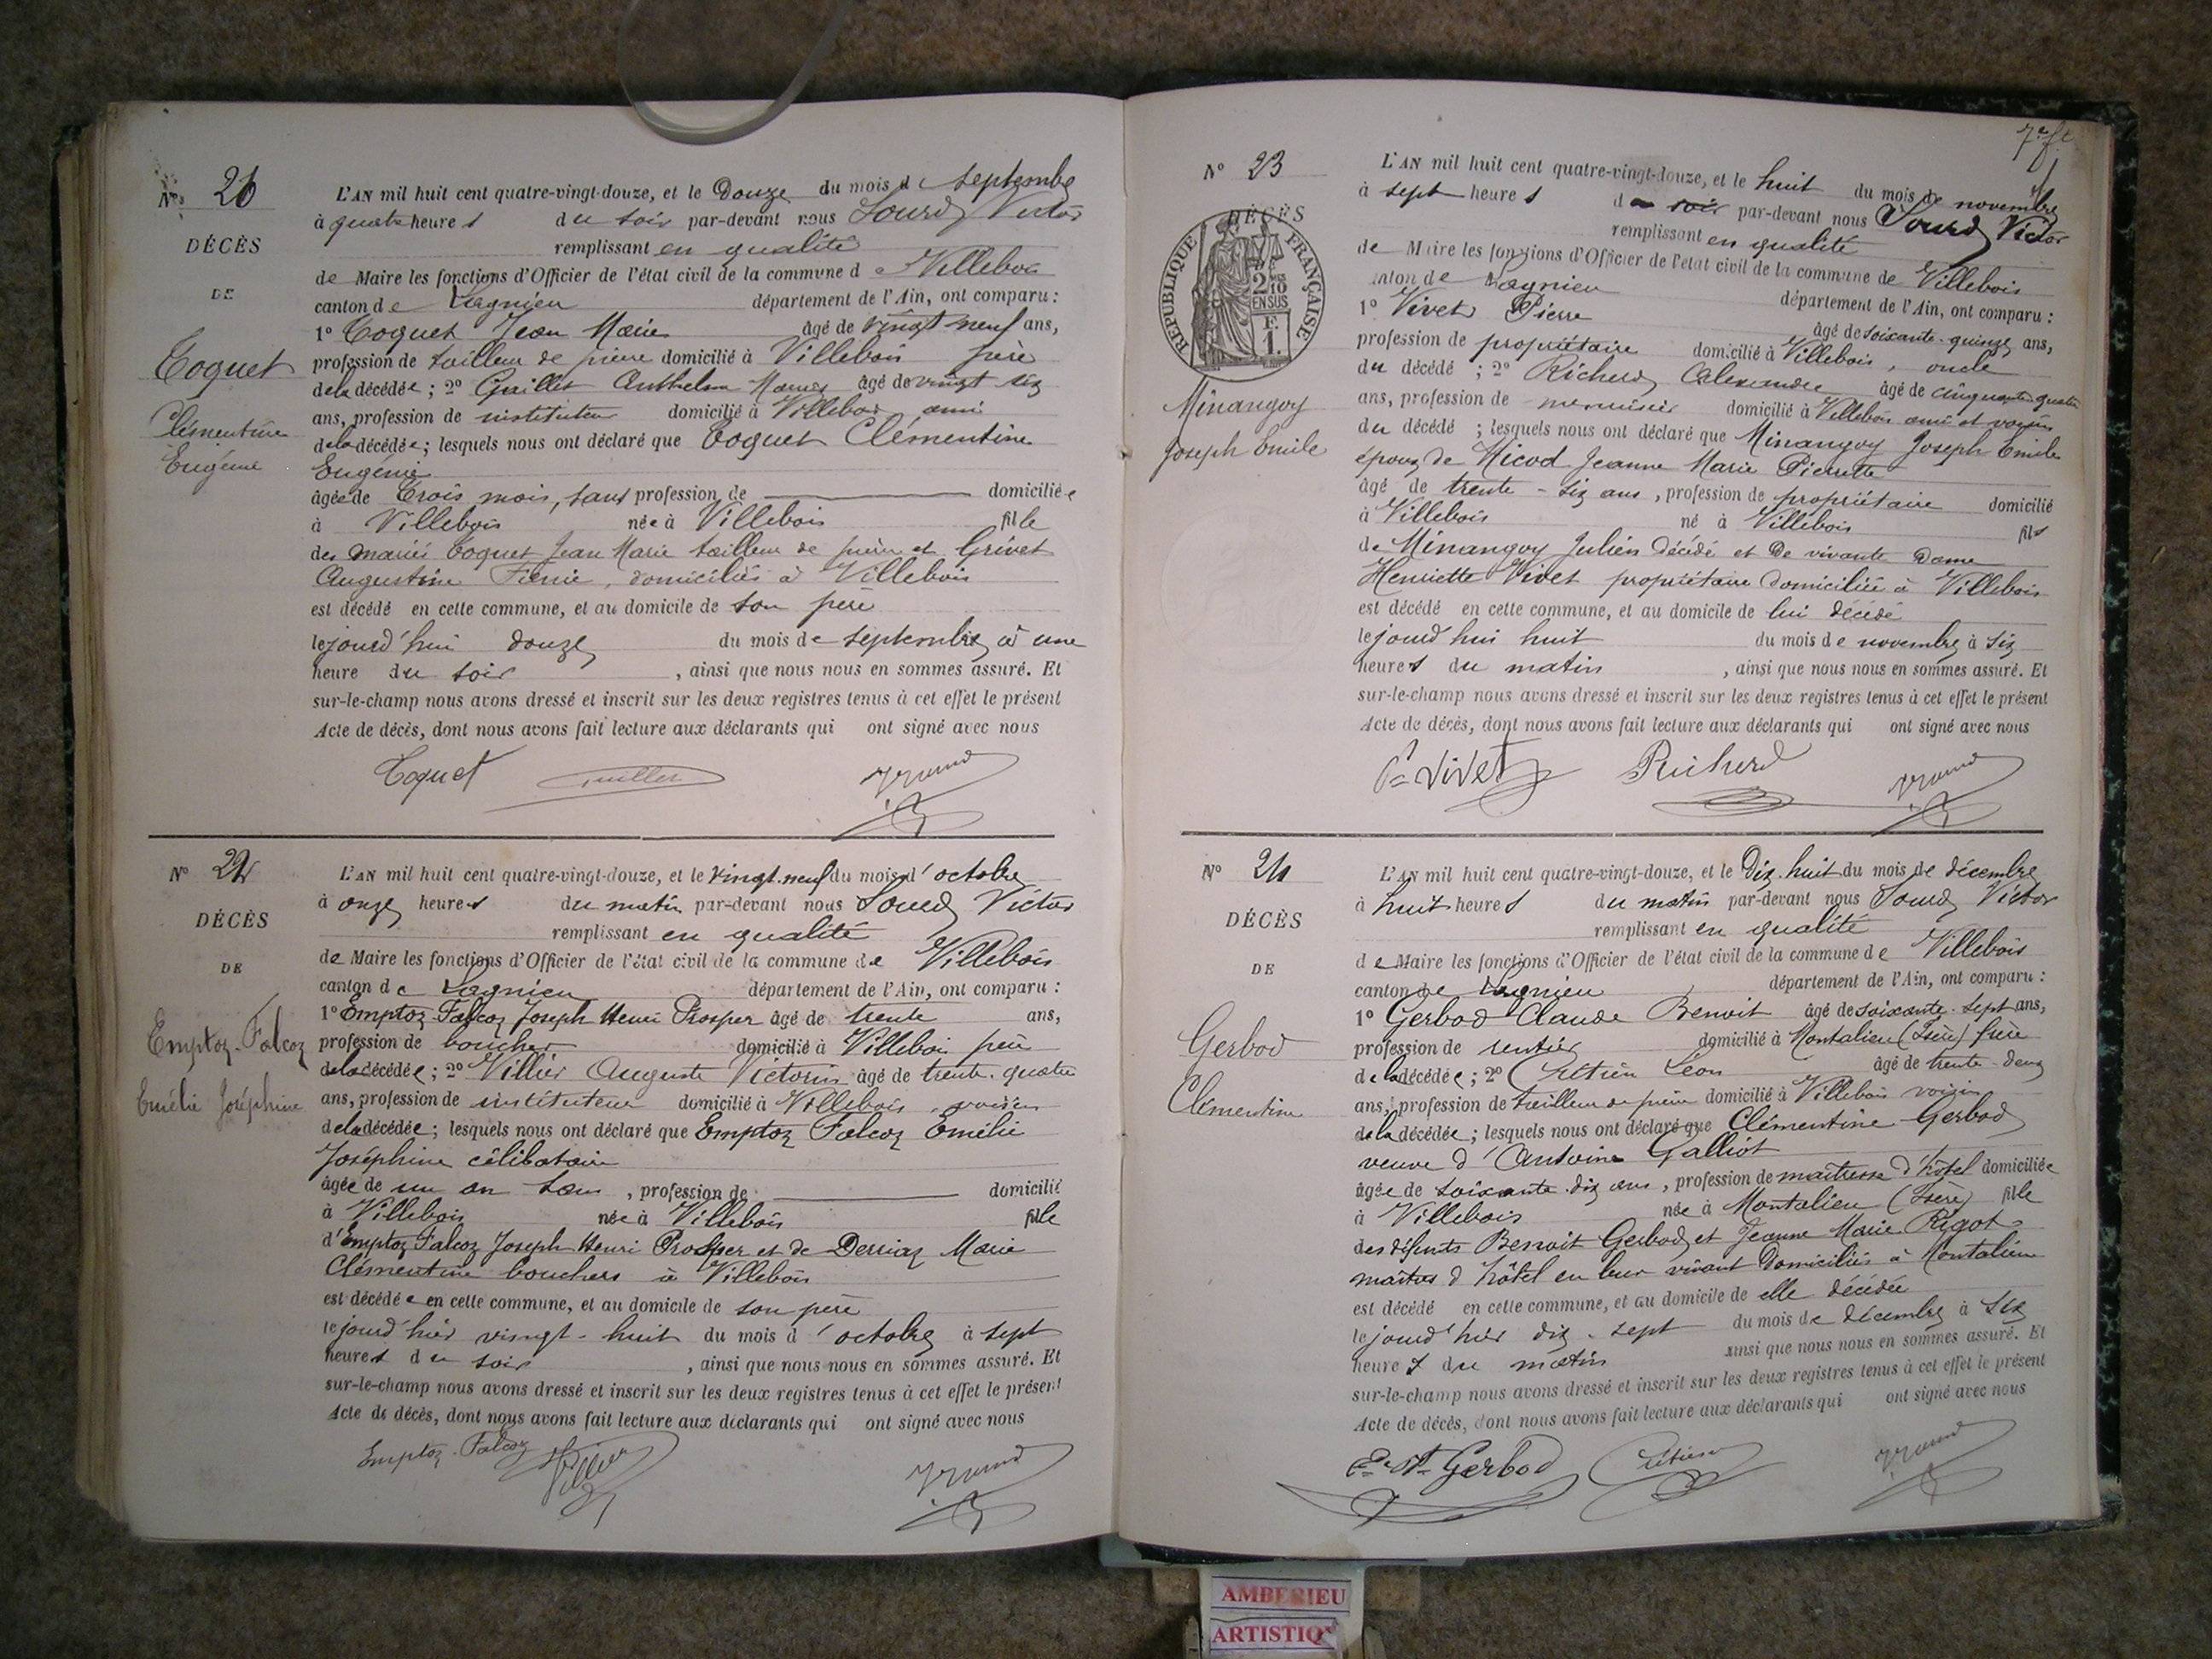 Nº 21
DÉCÈS
DE
Coquet
Clémentine
Eugénie
L'AN mil huit cent quatre-vingt-douze, et le Douze du mois de septembre
à quatre heures du soir par-devant nous Sourd Victor
remplissant en qualité
de Maire les fonctions d'Officier de l'état civil de la commune de Villebois
canton de Lagnieu département de l'Ain, ont comparu :
1º Coquet Jean Marie âgé de vingt neuf ans,
profession de tailleur de pierre domicilié à Villebois père
de la décédée ; 2º Guillet Anthelme âgé de vingt six
ans, profession de instituteur domicilié à Villebois ami
de la décédée ; lesquels nous ont déclaré que Coquet Clémentine
Eugénie
âgée de Trois mois, sans profession de domiciliée
à Villebois née à Villebois fille
des mariés Coquet Jean Marie tailleur de pierre et Grivet
Augustine domiciliés à Villebois
est décédé en cette commune, et au domicile de son père
le jourd'hui douze du mois de septembre à une
heure du soir , ainsi que nous nous en sommes assuré. Et
sur-le-champ nous avons dressé et inscrit sur les deux registres tenus à cet effet le présent
Acte de décès, dont nous avons fait lecture aux déclarants qui ont signé avec nous
Coquet Guillet VSourd
Nº 22
DÉCÈS
DE
Emptoz-Falcoz
Emélie Joséphine
L'AN mil huit cent quatre-vingt-douze, et le vingt-neuf du mois d'octobre
à onze heures du matin par-devant nous Sourd Victor
remplissant en qualité
de Maire les fonctions d'Officier de l'état civil de la commune de Villebois
canton de Lagnieu département de l'Ain, ont comparu :
1º Emptoz-Falcoz Joseph Henri Prosper âgé de trente ans,
profession de boucher domicilié à Villebois père
de la décédée ; 2º Villier Auguste Victorin âgé de trente-quatre
ans, profession de instituteur domicilié à Villebois voisin
de la décédée ; lesquels nous ont déclaré que Emptoz Falcoz Emélie
Joséphine célibataire
âgée de un an sans , profession de domicilié
à Villebois née à Villebois fille
d'Emptoz Falcoz Joseph Henri Prosper et de Derriaz Marie
Clémentine bouchers à Villebois
est décédée en cette commune, et au domicile de son père
le jourd'hier vingt-huit du mois d'octobre à sept
heures du soir , ainsi que nous nous en sommes assuré. Et
sur-le-champ nous avons dressé et inscrit sur les deux registres tenus à cet effet le présent
Acte de décès, dont nous avons fait lecture aux déclarants qui ont signé avec nous
Emptoz-Falcoz Villier VSourd
7e ft
Nº 23
DÉCÈS
RÉPUBLIQUE FRANÇAISE
2/10 EN SUS
F. 1.
Minangoy
Joseph Emile
L'AN mil huit cent quatre-vingt-douze, et le huit du mois de novembre
à sept heures du soir par-devant nous Sourd Victor
remplissant en qualité
de Maire les fonctions d'Officier de l'état civil de la commune de Villebois
canton de Lagnieu département de l'Ain, ont comparu :
1º Vivet Pierre âgé de soixante-quinze ans,
profession de propriétaire domicilié à Villebois, oncle
du décédé ; 2º Richerd Alexandre âgé de cinquante-quatre
ans, profession de menuisier domicilié à Villebois ami et voisin
du décédé ; lesquels nous ont déclaré que Minangoy Joseph Emile
époux de Nicod Jeanne Marie Pierrette
âgé de trente-six ans , profession de propriétaire domicilié
à Villebois né à Villebois fils
de Minangoy Julien décédé et de vivante Dame
Henriette Vivet propriétaire domiciliée à Villebois
est décédé en cette commune, et au domicile de lui décédé
le jourd'hui huit du mois de novembre à six
heures du matin , ainsi que nous nous en sommes assuré. Et
sur-le-champ nous avons dressé et inscrit sur les deux registres tenus à cet effet le présent
Acte de décès, dont nous avons fait lecture aux déclarants qui ont signé avec nous
Pre Vivet Richerd VSourd
Nº 24
DÉCÈS
DE
Gerbod
Clémentine
L'AN mil huit cent quatre-vingt-douze, et le Dix-huit du mois de décembre
à huit heures du matin par-devant nous Sourd Victor
remplissant en qualité
de Maire les fonctions d'Officier de l'état civil de la commune de Villebois
canton de Lagnieu département de l'Ain, ont comparu :
1º Gerbod Claude Benoit âgé de soixante-sept ans,
profession de rentier domicilié à Montalieu (Isère) frère
de la décédée ; 2º Crétien Léon âgé de trente-deux
ans, profession de tailleur de pierre domicilié à Villebois voisin
de la décédée ; lesquels nous ont déclaré que Clémentine Gerbod
veuve d'Antoine Galliot
âgée de soixante-dix ans , profession de maîtresse d'hôtel domiciliée
à Villebois née à Montalieu (Isère) fille
des défunts Benoit Gerbod et Jeanne Marie Rigot
maîtres d'hôtel en leur vivant domiciliés à Montalieu
est décédé en cette commune, et au domicile de elle décédée
le jourd'hier dix-sept du mois de décembre à six
heures du matin ainsi que nous nous en sommes assuré. Et
sur-le-champ nous avons dressé et inscrit sur les deux registres tenus à cet effet le présent
Acte de décès, dont nous avons fait lecture aux déclarants qui ont signé avec nous
Gerbod Crétien VSourd
AMBERIEU
ARTISTIQ